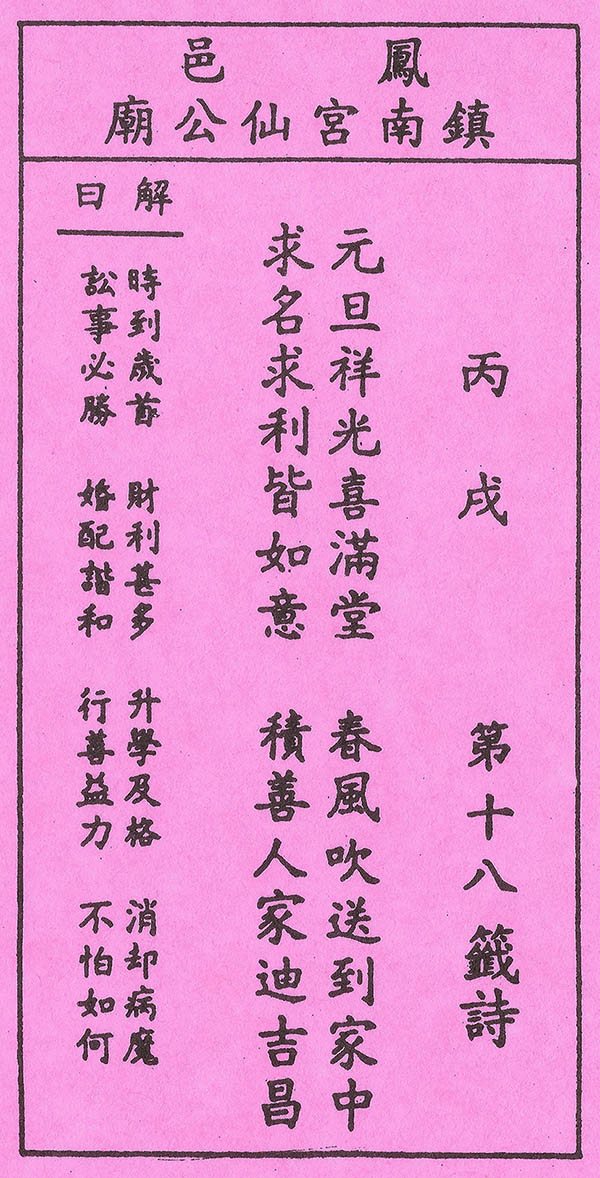 鳳邑
鎮南宮仙公廟
丙戌 第十八籤詩
元旦祥光喜滿堂 春風吹送到家中
求名求利皆如意 積善人家迪吉昌
解曰
時到歲首 財利甚多 升學及格 消却病魔
訟事必勝 婚配諧和 行善益力 不怕如何